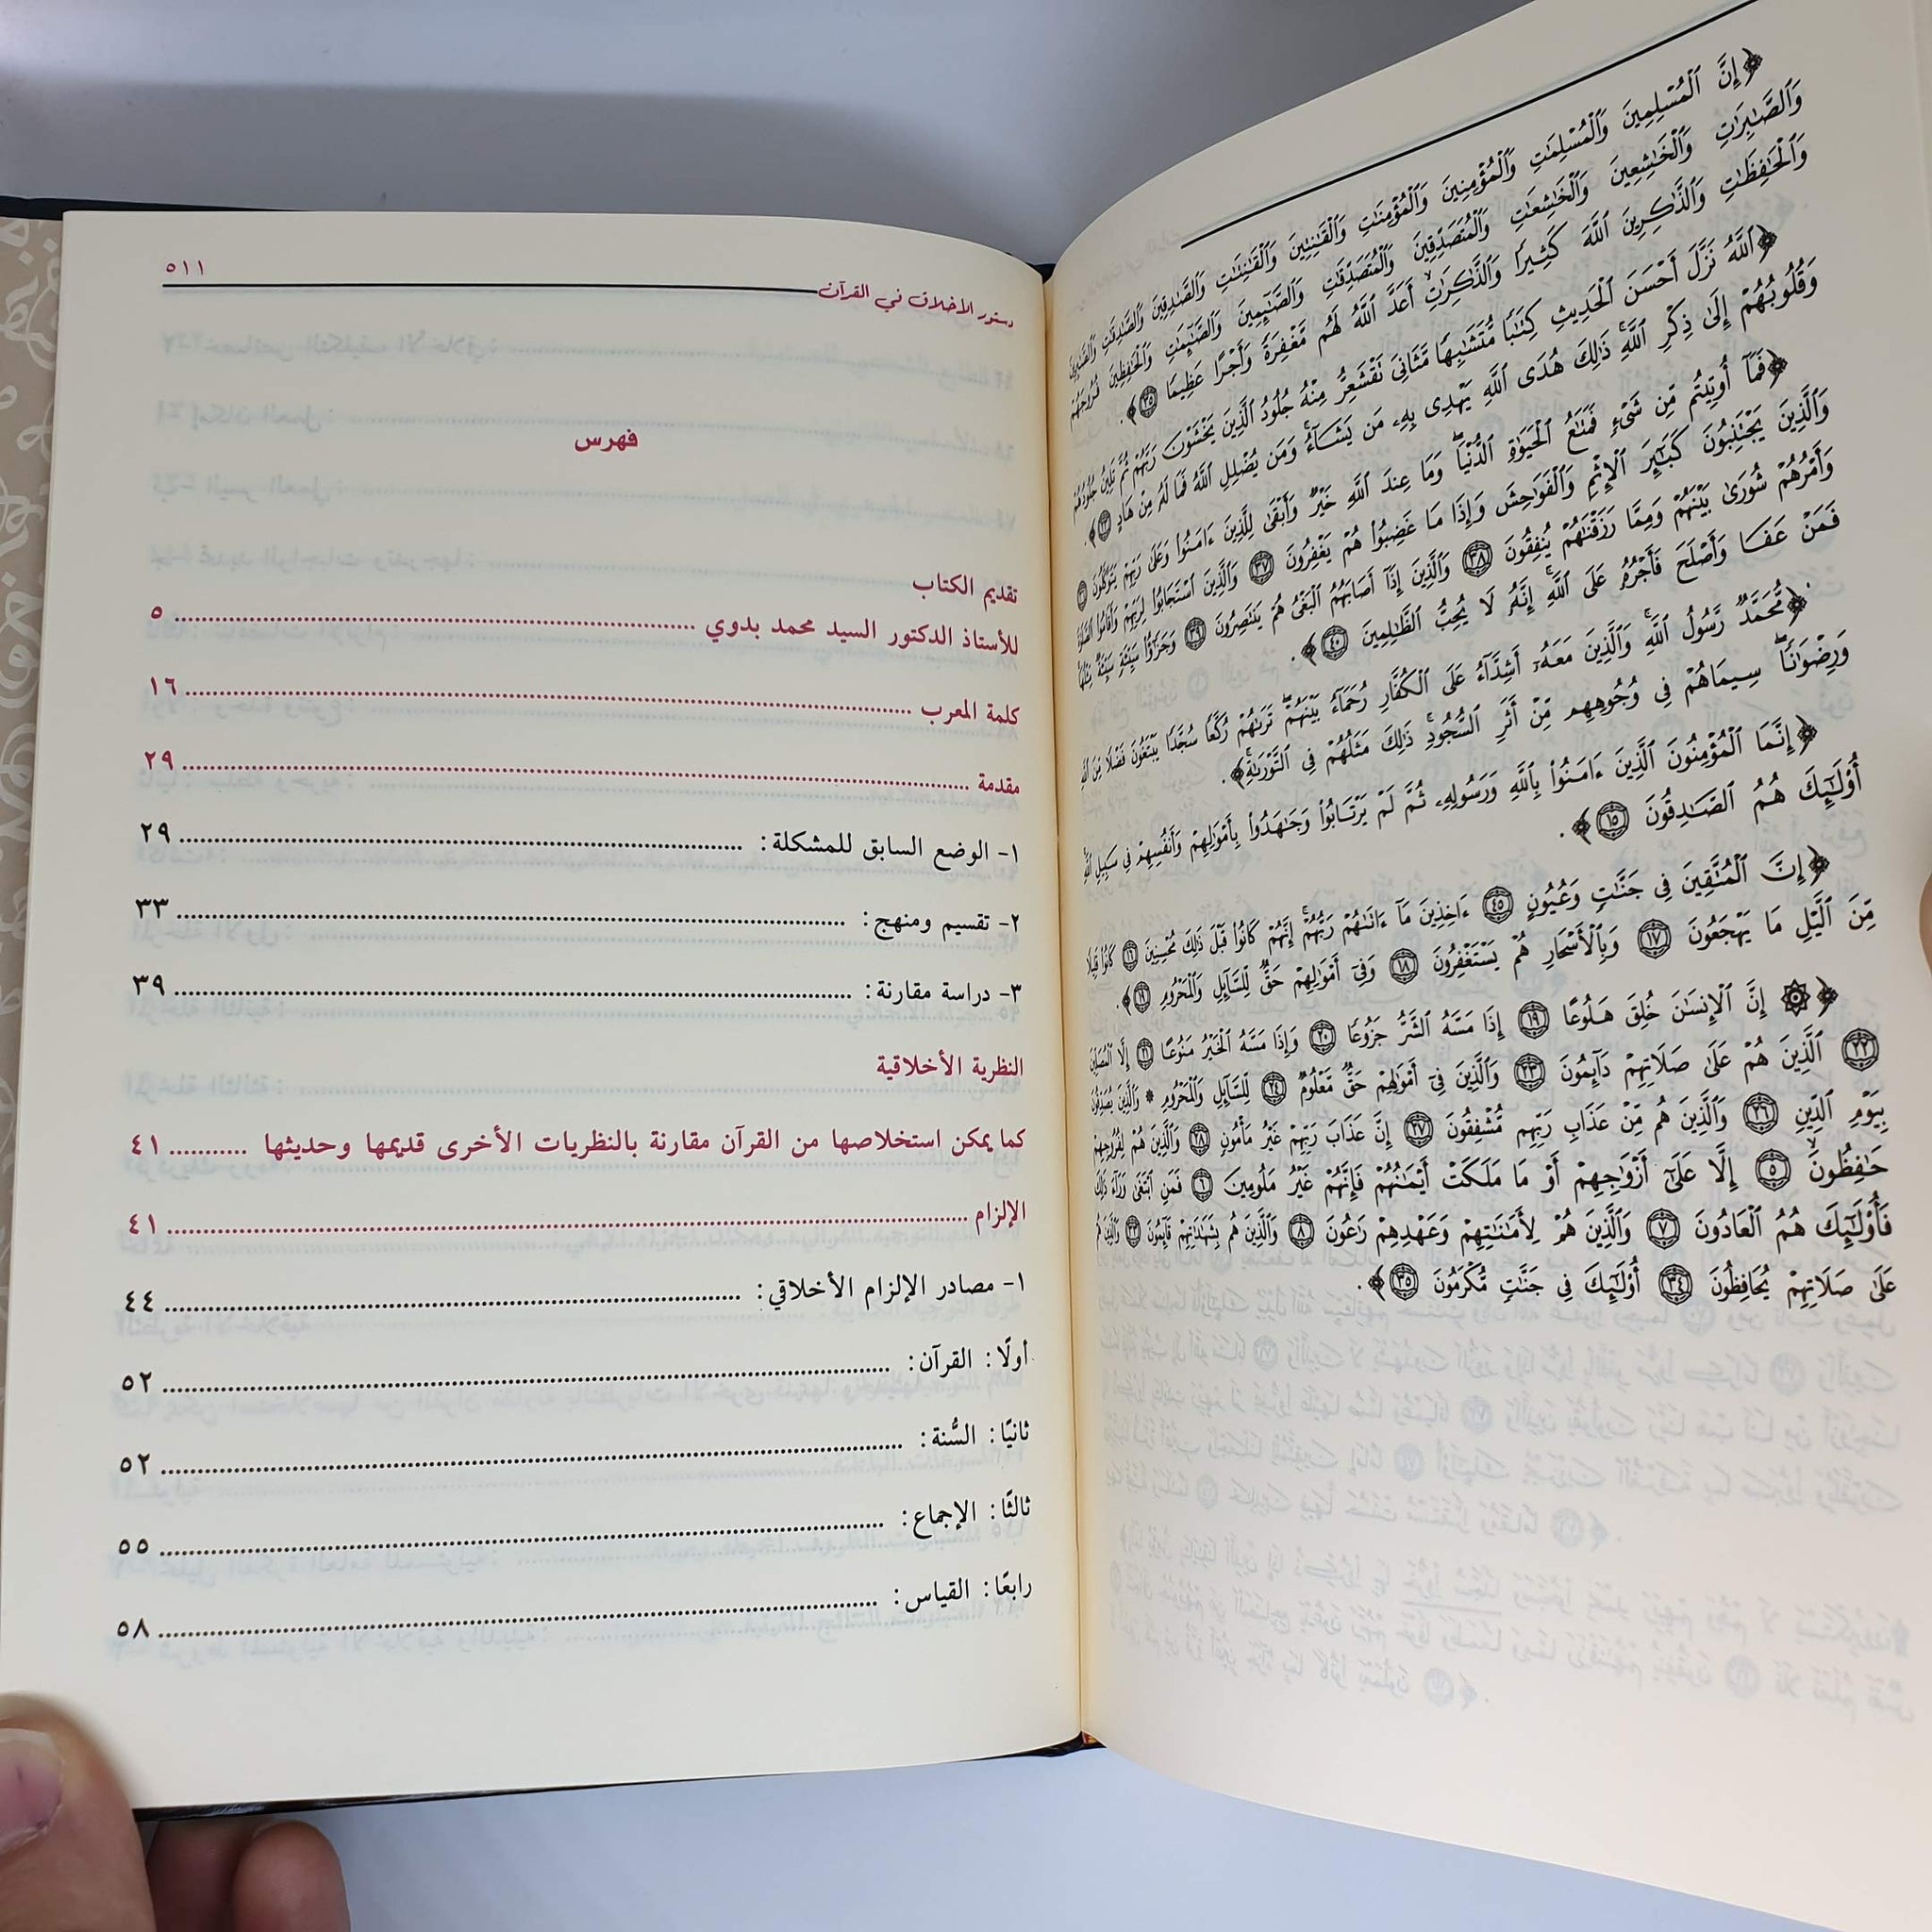 ﴿إِنَّ ٱلْمُسْلِمِينَ وَٱلْمُسْلِمَٰتِ وَٱلْمُؤْمِنِينَ وَٱلْمُؤْمِنَٰتِ وَٱلْقَٰنِتِينَ وَٱلْقَٰنِتَٰتِ وَٱلصَّٰدِقِينَ وَٱلصَّٰدِقَٰتِ وَٱلصَّٰبِرِينَ
وَٱلصَّٰبِرَٰتِ وَٱلْخَٰشِعِينَ وَٱلْخَٰشِعَٰتِ وَٱلْمُتَصَدِّقِينَ وَٱلْمُتَصَدِّقَٰتِ وَٱلصَّٰٓئِمِينَ وَٱلصَّٰٓئِمَٰتِ وَٱلْحَٰفِظِينَ فُرُوجَهُمْ
وَٱلْحَٰفِظَٰتِ وَٱلذَّٰكِرِينَ ٱللَّهَ كَثِيرًا وَٱلذَّٰكِرَٰتِ أَعَدَّ ٱللَّهُ لَهُم مَّغْفِرَةً وَأَجْرًا عَظِيمًا ٣٥﴾.
﴿ٱللَّهُ نَزَّلَ أَحْسَنَ ٱلْحَدِيثِ كِتَٰبًا مُّتَشَٰبِهًا مَّثَانِىَ تَقْشَعِرُّ مِنْهُ جُلُودُ ٱلَّذِينَ يَخْشَوْنَ رَبَّهُمْ ثُمَّ تَلِينُ جُلُودُهُمْ
وَقُلُوبُهُمْ إِلَىٰ ذِكْرِ ٱللَّهِ ذَٰلِكَ هُدَى ٱللَّهِ يَهْدِى بِهِۦ مَن يَشَآءُ وَمَن يُضْلِلِ ٱللَّهُ فَمَا لَهُۥ مِنْ هَادٍ ٢٣﴾.
﴿فَمَآ أُوتِيتُم مِّن شَىْءٍ فَمَتَٰعُ ٱلْحَيَوٰةِ ٱلدُّنْيَا وَمَا عِندَ ٱللَّهِ خَيْرٌ وَأَبْقَىٰ لِلَّذِينَ ءَامَنُوا۟ وَعَلَىٰ رَبِّهِمْ يَتَوَكَّلُونَ
وَٱلَّذِينَ يَجْتَنِبُونَ كَبَٰٓئِرَ ٱلْإِثْمِ وَٱلْفَوَٰحِشَ وَإِذَا مَا غَضِبُوا۟ هُمْ يَغْفِرُونَ ٣٧ وَٱلَّذِينَ ٱسْتَجَابُوا۟ لِرَبِّهِمْ وَأَقَامُوا۟ ٱلصَّلَوٰةَ
وَأَمْرُهُمْ شُورَىٰ بَيْنَهُمْ وَمِمَّا رَزَقْنَٰهُمْ يُنفِقُونَ ٣٨ وَٱلَّذِينَ إِذَآ أَصَابَهُمُ ٱلْبَغْىُ هُمْ يَنتَصِرُونَ ٣٩ وَجَزَٰٓؤُا۟ سَيِّئَةٍ سَيِّئَةٌ مِّثْلُهَا
فَمَنْ عَفَا وَأَصْلَحَ فَأَجْرُهُۥ عَلَى ٱللَّهِ إِنَّهُۥ لَا يُحِبُّ ٱلظَّٰلِمِينَ ٤٠﴾.
﴿مُّحَمَّدٌ رَّسُولُ ٱللَّهِ وَٱلَّذِينَ مَعَهُۥٓ أَشِدَّآءُ عَلَى ٱلْكُفَّارِ رُحَمَآءُ بَيْنَهُمْ تَرَىٰهُمْ رُكَّعًا سُجَّدًا يَبْتَغُونَ فَضْلًا مِّنَ ٱللَّهِ
وَرِضْوَٰنًا سِيمَاهُمْ فِى وُجُوهِهِم مِّنْ أَثَرِ ٱلسُّجُودِ ذَٰلِكَ مَثَلُهُمْ فِى ٱلتَّوْرَىٰةِ﴾.
﴿إِنَّمَا ٱلْمُؤْمِنُونَ ٱلَّذِينَ ءَامَنُوا۟ بِٱللَّهِ وَرَسُولِهِۦ ثُمَّ لَمْ يَرْتَابُوا۟ وَجَٰهَدُوا۟ بِأَمْوَٰلِهِمْ وَأَنفُسِهِمْ فِى سَبِيلِ ٱللَّهِ
أُو۟لَٰٓئِكَ هُمُ ٱلصَّٰدِقُونَ ١٥﴾.
﴿إِنَّ ٱلْمُتَّقِينَ فِى جَنَّٰتٍ وَعُيُونٍ ٤٥ ءَاخِذِينَ مَآ ءَاتَىٰهُمْ رَبُّهُمْ إِنَّهُمْ كَانُوا۟ قَبْلَ ذَٰلِكَ مُحْسِنِينَ ١٦ كَانُوا۟ قَلِيلًا
مِّنَ ٱلَّيْلِ مَا يَهْجَعُونَ ١٧ وَبِٱلْأَسْحَارِ هُمْ يَسْتَغْفِرُونَ ١٨ وَفِىٓ أَمْوَٰلِهِمْ حَقٌّ لِّلسَّآئِلِ وَٱلْمَحْرُومِ ١٩﴾.
﴿۞ إِنَّ ٱلْإِنسَٰنَ خُلِقَ هَلُوعًا ١٩ إِذَا مَسَّهُ ٱلشَّرُّ جَزُوعًا ٢٠ وَإِذَا مَسَّهُ ٱلْخَيْرُ مَنُوعًا ٢١ إِلَّا ٱلْمُصَلِّينَ
٢٢ ٱلَّذِينَ هُمْ عَلَىٰ صَلَاتِهِمْ دَآئِمُونَ ٢٣ وَٱلَّذِينَ فِىٓ أَمْوَٰلِهِمْ حَقٌّ مَّعْلُومٌ ٢٤ لِّلسَّآئِلِ وَٱلْمَحْرُومِ * وَٱلَّذِينَ يُصَدِّقُونَ
بِيَوْمِ ٱلدِّينِ ٢٦ وَٱلَّذِينَ هُم مِّنْ عَذَابِ رَبِّهِم مُّشْفِقُونَ ٢٧ إِنَّ عَذَابَ رَبِّهِمْ غَيْرُ مَأْمُونٍ ٢٨ وَٱلَّذِينَ هُمْ لِفُرُوجِهِمْ
حَٰفِظُونَ ٥ إِلَّا عَلَىٰٓ أَزْوَٰجِهِمْ أَوْ مَا مَلَكَتْ أَيْمَٰنُهُمْ فَإِنَّهُمْ غَيْرُ مَلُومِينَ ٦ فَمَنِ ٱبْتَغَىٰ وَرَآءَ ذَٰلِكَ
فَأُو۟لَٰٓئِكَ هُمُ ٱلْعَادُونَ ٧ وَٱلَّذِينَ هُمْ لِأَمَٰنَٰتِهِمْ وَعَهْدِهِمْ رَٰعُونَ ٨ وَٱلَّذِينَ هُم بِشَهَٰدَٰتِهِمْ قَآئِمُونَ ٣٣ وَٱلَّذِينَ هُمْ
عَلَىٰ صَلَاتِهِمْ يُحَافِظُونَ ٣٤ أُو۟لَٰٓئِكَ فِى جَنَّٰتٍ مُّكْرَمُونَ ٣٥﴾.
دستور الأخلاق في القرآن ٥١١
فهرس
تقديم الكتاب
للأستاذ الدكتور السيد محمد بدوي ... ٥
كلمة المعرب ... ١٦
مقدمة ... ٢٩
١- الوضع السابق للمشكلة: ... ٢٩
٢- تقسيم ومنهج: ... ٣٣
٣- دراسة مقارنة: ... ٣٩
النظرية الأخلاقية
كما يمكن استخلاصها من القرآن مقارنة بالنظريات الأخرى قديمها وحديثها ... ٤١
الإلزام ... ٤١
١- مصادر الإلزام الأخلاقي: ... ٤٤
أولًا: القرآن: ... ٥٢
ثانيًا: السُّنة: ... ٥٢
ثالثًا: الإجماع: ... ٥٥
رابعًا: القياس: ... ٥٨